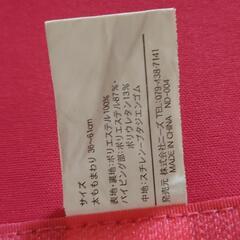 サイズ
太ももまわり 36〜61cm
表地・裏地：ポリエステル100%
パイピング部：ポリエステル87%・
ポリウレタン13%
中地：スチレンーブタジエンゴム
発売元 株式会社ニーズ TEL:079-438-7141
MADE IN CHINA ND-004